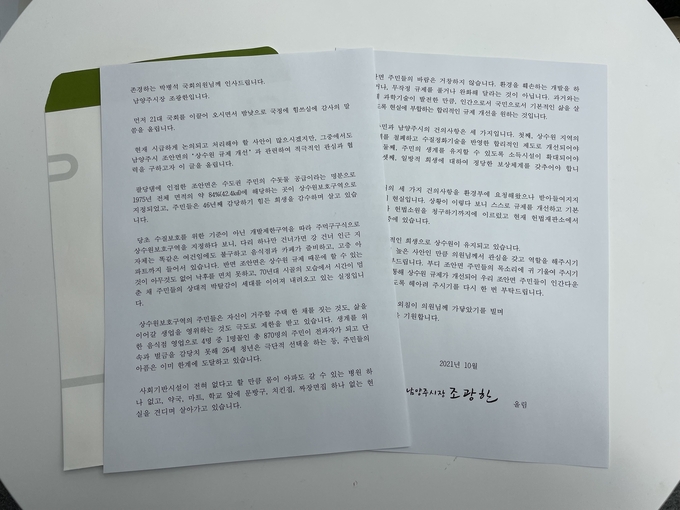 존경하는 박병석 국회의원님께 인사드립니다.
남양주시장 조광한입니다.
먼저 21대 국회를 이끌어 오시면서 밤낮으로 국정에 힘쓰심에 감사의 말
씀을 올립니다.
현재 시급하게 논의되고 처리해야 할 사안이 많으시겠지만, 그중에서도
남양주시 조안면의 "상수원 규제 개선" 과 관련하여 적극적인 관심과 협
력을 구하고자 이 글을 올립니다.
팔당댐에 인접한 조안면은 수도권 주민의 수돗물 공급이라는 명분으로
1975년 전체 면적의 약 84%(42.4㎢)에 해당하는 곳이 상수원보호구역으로
지정되었고, 주민들은 46년째 감당하기 힘든 희생을 감수하며 살고 있습
니다.
당초 수질보호를 위한 기준이 아닌 개발제한구역을 따라 주먹구구식으로
상수원보호구역을 지정하다 보니, 다리 하나만 건너가면 강 건너 인근 지
자체는 똑같은 여건임에도 불구하고 음식점과 카페가 즐비하고, 고층 아
파트까지 들어서 있습니다. 반면 조안면은 상수원 규제 때문에 할 수 있는
것이 아무것도 없어 낙후를 면치 못하고, 70년대 시골의 모습에서 시간이 멈
춘 채 주민들의 상대적 박탈감이 세대를 이어져 내려오고 있는 실정입니
다.
상수원보호구역의 주민들은 자신이 거주할 주택 한 채를 짓는 것도, 삶을
이어갈 생업을 영위하는 것도 극도로 제한을 받고 있습니다. 생계를 위
한 음식점 영업으로 4명 중 1명꼴인 총 870명의 주민이 전과자가 되고 단
속과 벌금을 감당치 못해 26세 청년은 극단적 선택을 하는 등, 주민들의
아픔은 이미 한계에 도달하고 있습니다.
사회기반시설이 전혀 없다고 할 만큼 몸이 아파도 갈 수 있는 병원 하
나 없고, 약국, 마트, 학교 앞에 문방구, 치킨집, 짜장면집 하나 없는 현
실을 견디며 살아가고 있습니다.
안면 주민들의 바람은 거창하지 않습니다. 환경을 훼손하는 개발을 하
거나, 무작정 규제를 풀거나 완화해 달라는 것이 아닙니다. 과거와는
과학기술이 발전한 만큼, 인간으로서 국민으로서 기본적인 삶을 살
도록 현실에 부합하는 합리적인 규제 개선을 원하는 것입니다.
주민과 남양주시의 건의사항은 세 가지입니다. 첫째, 상수원 지역의
를 철폐하고 수질정화기술을 반영한 합리적인 제도로 개선되어야
둘째, 주민의 생계를 유지할 수 있도록 소득시설이 확대되어야
셋째, 일방적 희생에 대하여 정당한 보상체계를 갖추어야 합니
의 세 가지 건의사항을 환경부에 요청해왔으나 받아들여지지
현실입니다. 상황이 이렇다 보니 스스로 규제를 개선하고 기본
헌법소원을 청구하기까지에 이르렀고 현재 헌법재판소에서
중에 있습니다.
적인 희생으로 상수원이 유지되고 있습니다.
높은 사안인 만큼 의원님께서 관심을 갖고 역할을 해주시기
드립니다. 부디 조안면 주민들의 목소리에 귀 기울여 주시기
통해 상수원 규제가 개선되어 우리 조안면 주민들이 인간다운
도록 헤아려 주시기를 다시 한 번 부탁드립니다.
회질이 의원님께 가닿았기를 빌며
기원합니다.
2021년 10월
남양주시장 조광한 올림